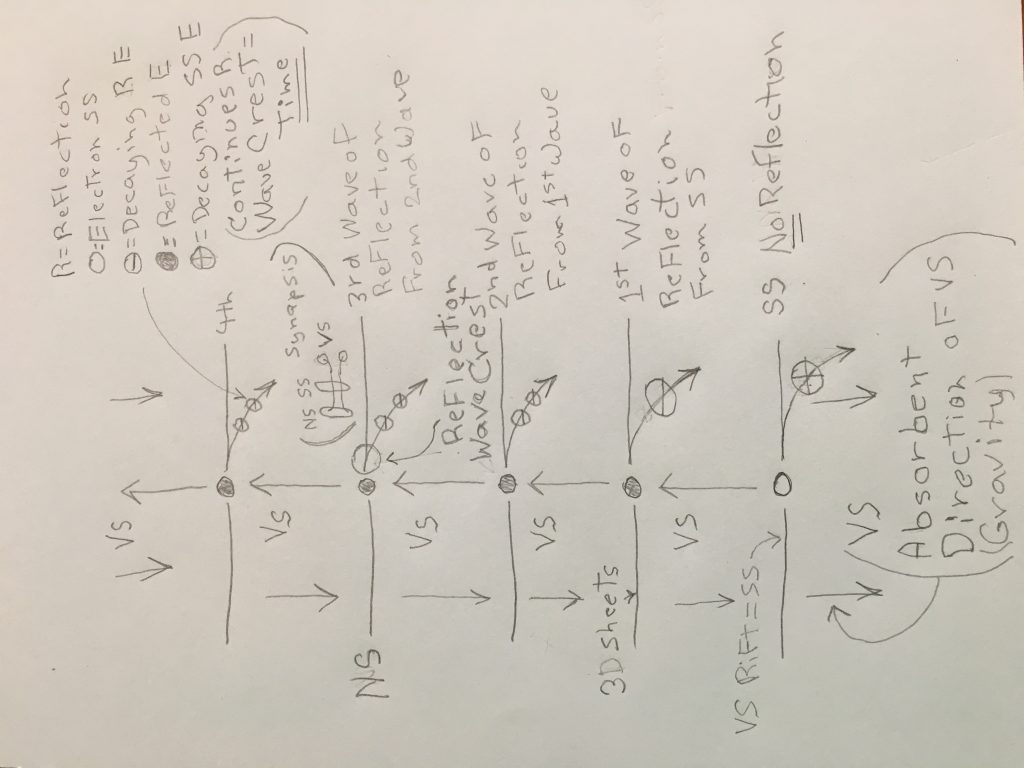 R=Reflection
O=Electron SS
⊖=Decaying R E
●=Reflected E
⊕=Decaying SS E
(Continues R,
Wave Crest=
Time)
VS
4th
VS
(NS SS Synapsis)
VS
NS
3rd Wave oF
ReFlection
From 2nd Wave
VS
ReFlection
Wave Crest
2nd Wave oF
ReFlection
From 1st Wave
VS
3D Sheets
1st Wave oF
ReFlection
From SS
VS
VS RiFt=SS
SS No ReFlection
(VS
Absorbent
Direction oF VS
(Gravity)